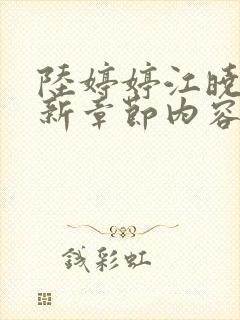 陸婷婷江曉
新章節內容
錢彩虹